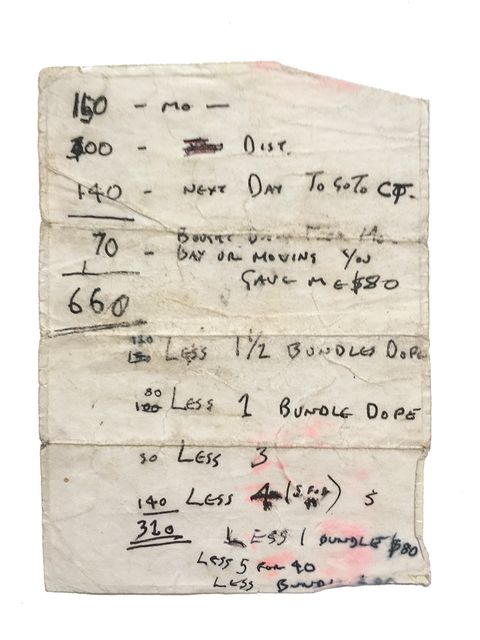 150 - MO -
300 - DIST.
140 - NEXT DAY TO GO TO CT.
70 - BOUGHT FROM MO.
DAY OR MOVING YOU
GAVE ME $80
660
120 LESS 1 1/2 BUNDLES DOPE
80
100 LESS 1 BUNDLE DOPE
30 LESS 3
140 LESS 4 (5 FOR) 5
310 LESS 1 BUNDLE $80
LESS 5 FOR 40
LESS BUNDLE